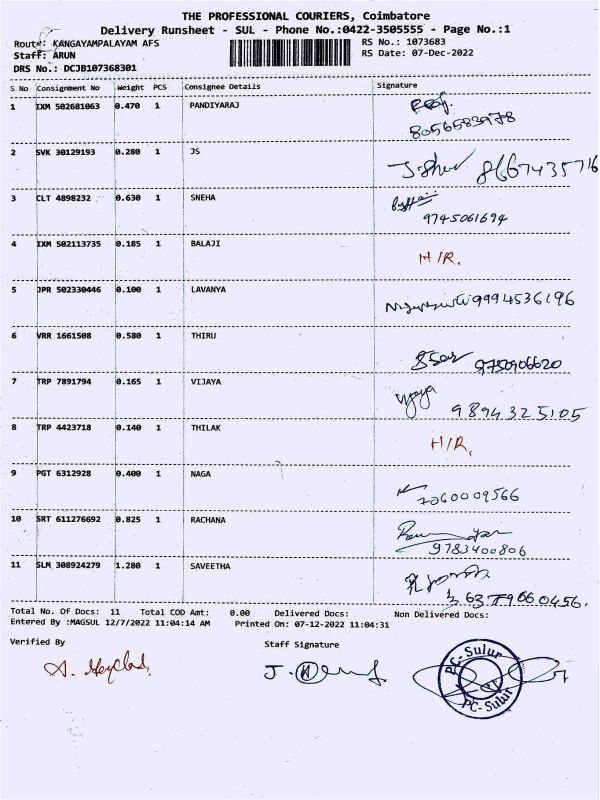 THE PROFESSIONAL COURIERS, Coimbatore
Delivery Runsheet - SUL - Phone No.:0422-3505555 - Page No.:1
Route: KANGAYAMPALAYAM AFS
RS No.: 1073683
Staff: ARUN
RS Date: 07-Dec-2022
DRS No.: DCJB107368301
S No Consignment No Weight PCS Consignee Details Signature
1 IXM 502681063 0.470 1 PANDIYARAJ
8056583978
2 SVK 30129193 0.280 1 JS
8667435716
3 CLT 4898232 0.630 1 SNEHA
9745061694
4 IXM 502113735 0.185 1 BALAJI
H/R.
5 JPR 502330446 0.100 1 LAVANYA
9994536196
6 VRR 1661508 0.580 1 THIRU
9750906620
7 TRP 7891794 0.165 1 VIJAYA
Vijaya
9894325105
8 TRP 4423718 0.140 1 THILAK
H/R.
9 PGT 6312928 0.400 1 NAGA
7060009566
10 SRT 611276692 0.825 1 RACHANA
9783400806
11 SLM 308924279 1.280 1 SAVEETHA
Total No. Of Docs: 11 Total COD Amt: 0.00 Delivered Docs: Non Delivered Docs:
Entered By :MAGSUL 12/7/2022 11:04:14 AM Printed On: 07-12-2022 11:04:31
Verified By
Staff Signature
PC-Sulur
PC-Sulur